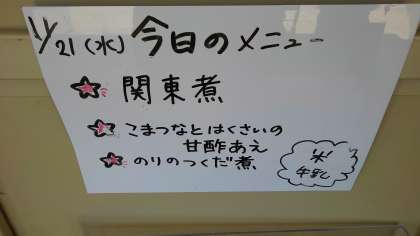 11/21(水) 今日のメニュー
関東煮
こまつなとはくさいの
甘酢あえ
のりのつくだ煮
米!
牛乳